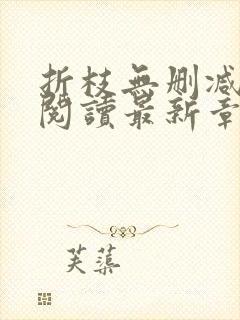 折枝無删减
閱讀最新章
芙蕖